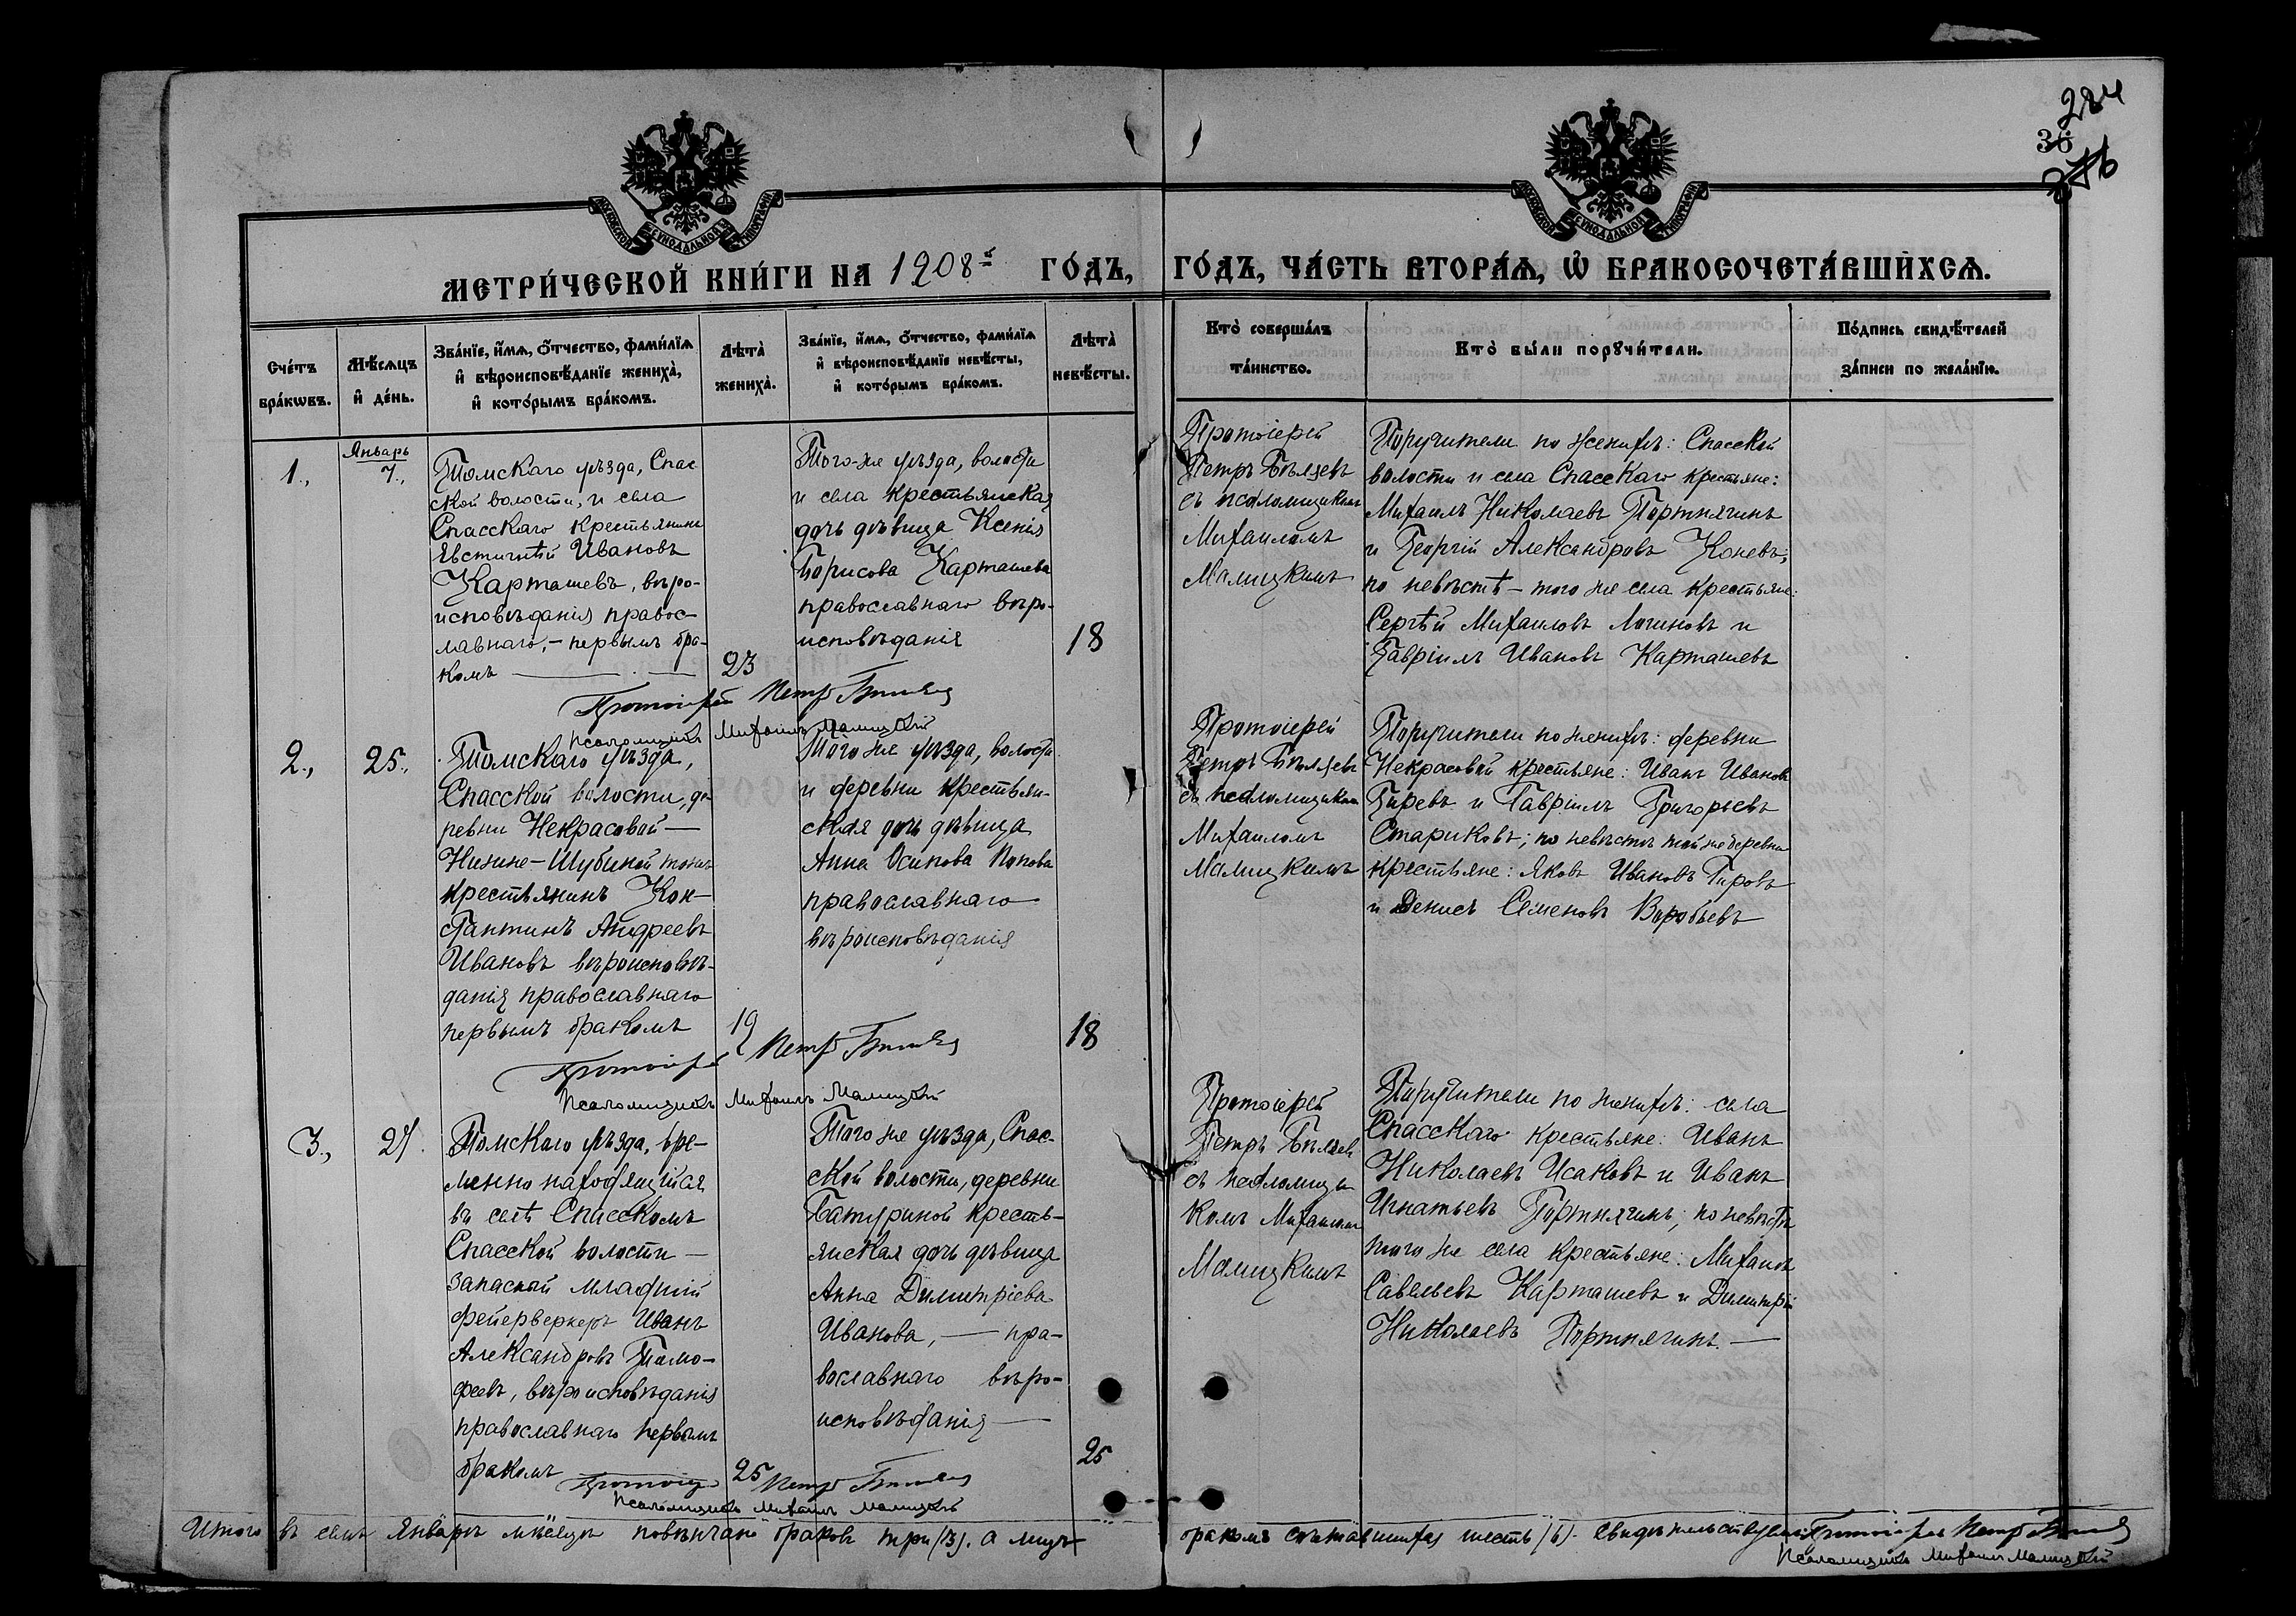 284
36
МОСКОВСКОЙ СѴНОДАЛЬНОЙ ТИПОГРАФІИ
МОСКОВСКОЙ СѴНОДАЛЬНОЙ ТИПОГРАФІИ
МЕТРИ́ЧЕСКОЙ КНИ́ГИ НА 1908й ГО́ДЪ,
ГО́ДЪ, ЧА́СТЬ ВТОРА́Ѧ, Ѽ БРАКОСОЧЕТА́ВШИХСѦ.
Сче́тъ
бра́кѡвъ.
Мѣ́сѧцъ
и҆ де́нь.
Зва́нїе, и҆́мѧ, ѻ҆́тчество, фами́лїѧ
и҆ вѣроисповѣ́данїе женихà,
и҆ кото́рымъ бра́комъ.
Лѣтà
женихà.
Зва́нїе, и҆́мѧ, ѻ҆́тчество, фами́лїѧ
и҆ вѣроисповѣ́данїе невѣ́сты,
и҆ кото́рымъ бра́комъ.
Лѣтà
невѣ́сты.
Кто̀ соверша́лъ
та́инство.
Кто̀ бы́ли порꙋчи́тели.
По́дпись свидѣ́телей
за́писи по жела́нїю.
1.,
Январь
7.,
Томскаго уѣзда, Спас
ской волости, и села
Спасскаго крестьянинъ
Евстигнѣй Ивановъ
Карташевъ, вѣро-
исповѣданія правос-
лавнаго, - первымъ бра-
комъ
23
Того-же уѣзда, волости
и села крестьянская
дочь дѣвица Ксенія
Борисова Карташева
православнаго вѣро-
исповѣданія
18
Протоіерей
Петръ Бѣляевъ
съ псаломщикомъ
Михаиломъ
Малицкимъ
Поручители по женихѣ: Спасской
волости и села Спасскаго крестьяне:
Михаилъ Николаевъ Портнягинъ
и Георгій Александровъ Коневъ;
по невѣстѣ - того же села крестьяне:
Сергѣй Михаиловъ Логиновъ и
Гавріилъ Ивановъ Карташевъ
Протоіерей Петръ Бѣляевъ
Псаломщикъ Михаилъ Малицкій
2.,
25.,
Томскаго уѣзда,
Спасской волости, де-
ревни Некрасовой -
Нижне-Шубиной тожъ
крестьянинъ Кон-
стантинъ Андреевъ
Ивановъ вѣроисповѣ-
данія православнаго
первымъ бракомъ
19
Того же уѣзда, волости
и деревни крестьян-
ская дочь дѣвица
Анна Осипова Попова
православнаго
вѣроисповѣданія
18
Протоіерей
Петръ Бѣляевъ
съ псаломщикомъ
Михаиломъ
Малицкимъ
Поручители по женихѣ: деревни
Некрасовой крестьяне: Иванъ Ивановъ
Гыревъ и Гавріилъ Григорьевъ
Стариковъ; по невѣстѣ той же деревни
крестьяне: Яковъ Ивановъ Гыровъ
и Денисъ Семеновъ Воробьевъ
Протоіерей Петръ Бѣляевъ
Псаломщикъ Михаилъ Малицкій
3.,
27.
Томскаго уѣзда, вре-
менно находящійся
въ селѣ Спасскомъ
Спасской волости -
запасный младшій
фейерверкеръ Иванъ
Александровъ Тимо-
феевъ, вѣроисповѣданія
православнаго первымъ
бракомъ
25
Того же уѣзда, Спас-
ской волости, деревни
Батуриной кресть-
янская дочь дѣвица
Анна Димитріева
Иванова, - пра-
вославнаго вѣро-
исповѣданія
25
Протоіерей
Петръ Бѣляевъ
съ псаломщи
комъ Михаиломъ
Малицкимъ
Поручители по женихѣ: села
Спасскаго крестьяне: Иванъ
Николаевъ Исаковъ и Иванъ
Игнатьевъ Портнягинъ; по невѣстѣ
того же села крестьяне: Михаилъ
Савельевъ Карташевъ и Димитрій
Николаевъ Портнягинъ. -
Протоіерей Петръ Бѣляевъ
Псаломщикъ Михаилъ Малицкій
Итого въ семъ Январѣ мѣсяцѣ повѣнчано браковъ три (3). а лицъ
бракомъ сочетавшихся шесть (6). Свидѣтельствуемъ: Протоіерей Петръ Бѣляевъ
Псаломщикъ Михаилъ Малицкій